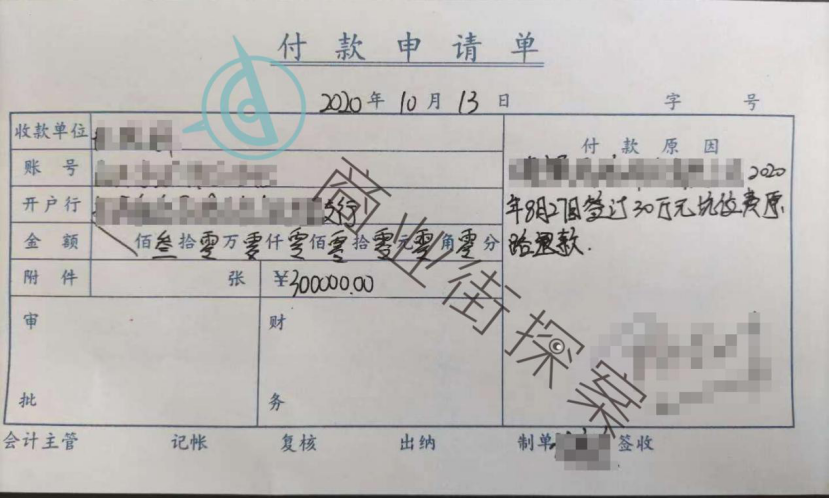 付款申请单
2020年10月13日 字 号
收款单位
账号
开户行 支行
金额 佰叁拾零万零仟零佰零拾零元零角零分
附件 张 ¥300000.00
审批
财务
付款原因
2020
年8月27日签订30万元坑位费原
路退款.
会计主管 记帐 复核 出纳 制单 签收
商业街探案